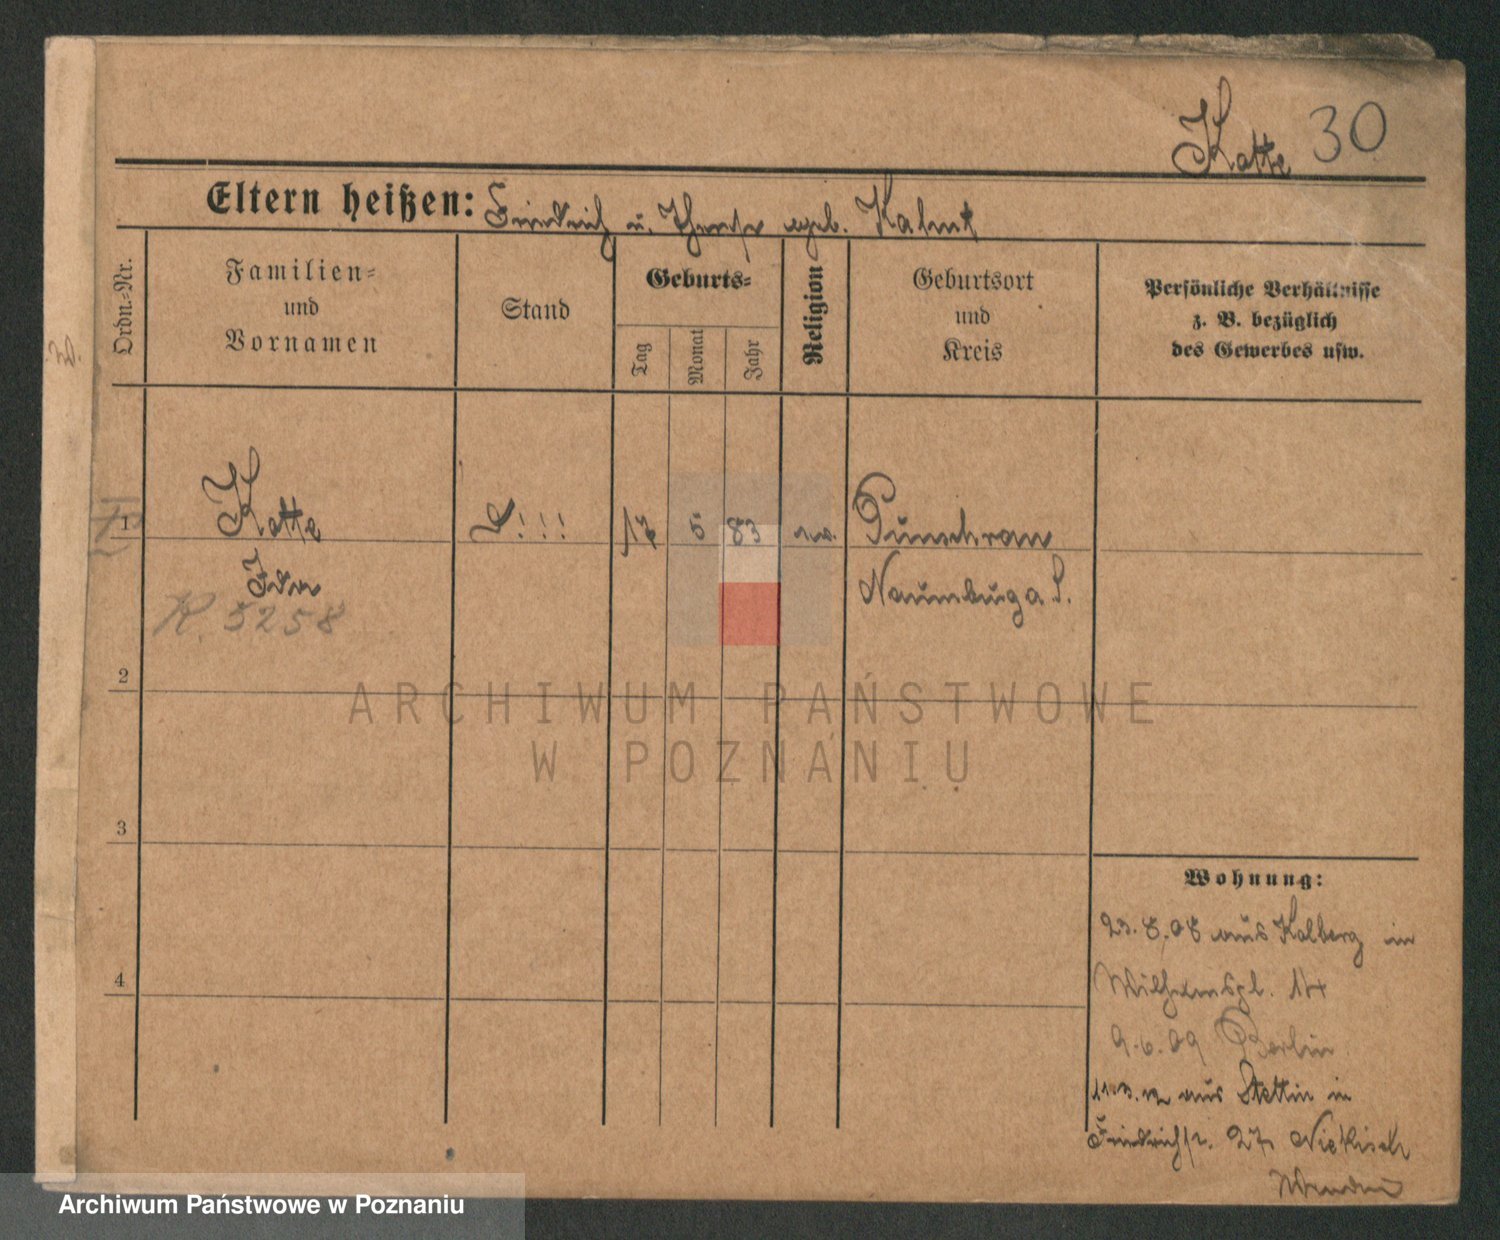 Katte 30
Eltern heißen: Friedrich u. Therese geb. Kahnt
Ordn.=Nr.
Familien=
und
Vornamen
Stand
Geburts=
Tag
Monat
Jahr
Religion
Geburtsort
und
Kreis
Persönliche Verhältnisse
z. B. bezüglich
des Gewerbes usw.
1 Katte !!! 17 5 83 ev.
Ida Naumburg a. S.
K. 5258
2
ARCHIWUM PAŃSTWOWE
W POZNANIU
3
4
Wohnung:
23. 8. 08 aus Kolberg in
Wilhelmspl. 14
9. 6. 09 Berlin
aus Stettin in
Friedrichstr. 27
Archiwum Państwowe w Poznaniu